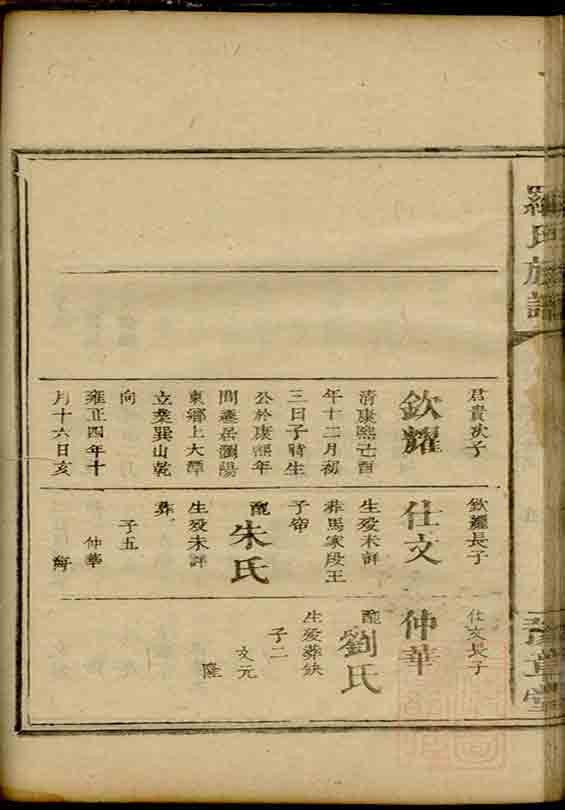 羅氏族譜
豫章堂
君貴次子
欽耀
清康熙己酉
年十二月初
三日子時生
公於康熙年
間遷居瀏陽
東鄉上大潭
立業巽山乾
向
雍正四年十
月十六日亥
欽耀長子
仕文
生歿未詳
葬馬家段王
子
配
朱氏
生歿未詳
葬
子五
仲華
仕文長子
仲華
配
劉氏
生歿葬缺
子二
文元
隆